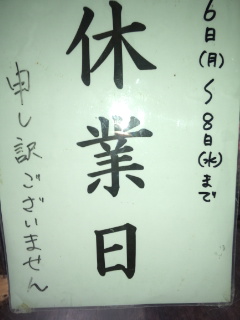 6日(月)〜8日(水)まで
休業日
申し訳ございません